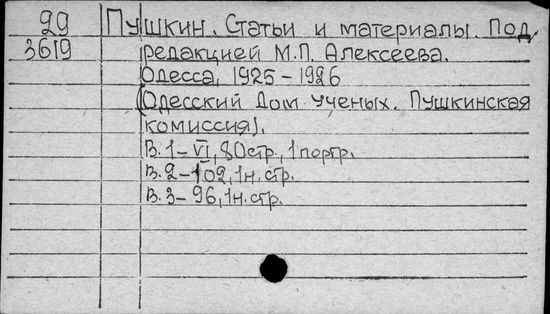 29 Пушкин. Статьи и материалы. Под
3619 редакцией М.П. Алексеева.
Одесса, 1925-1926
(Одесский Дом ученых. Пушкинская
комиссия).
В.1-VI, 80стр., 1портр.
В.2-102, 1н.стр.
В.3-96, 1н.стр.